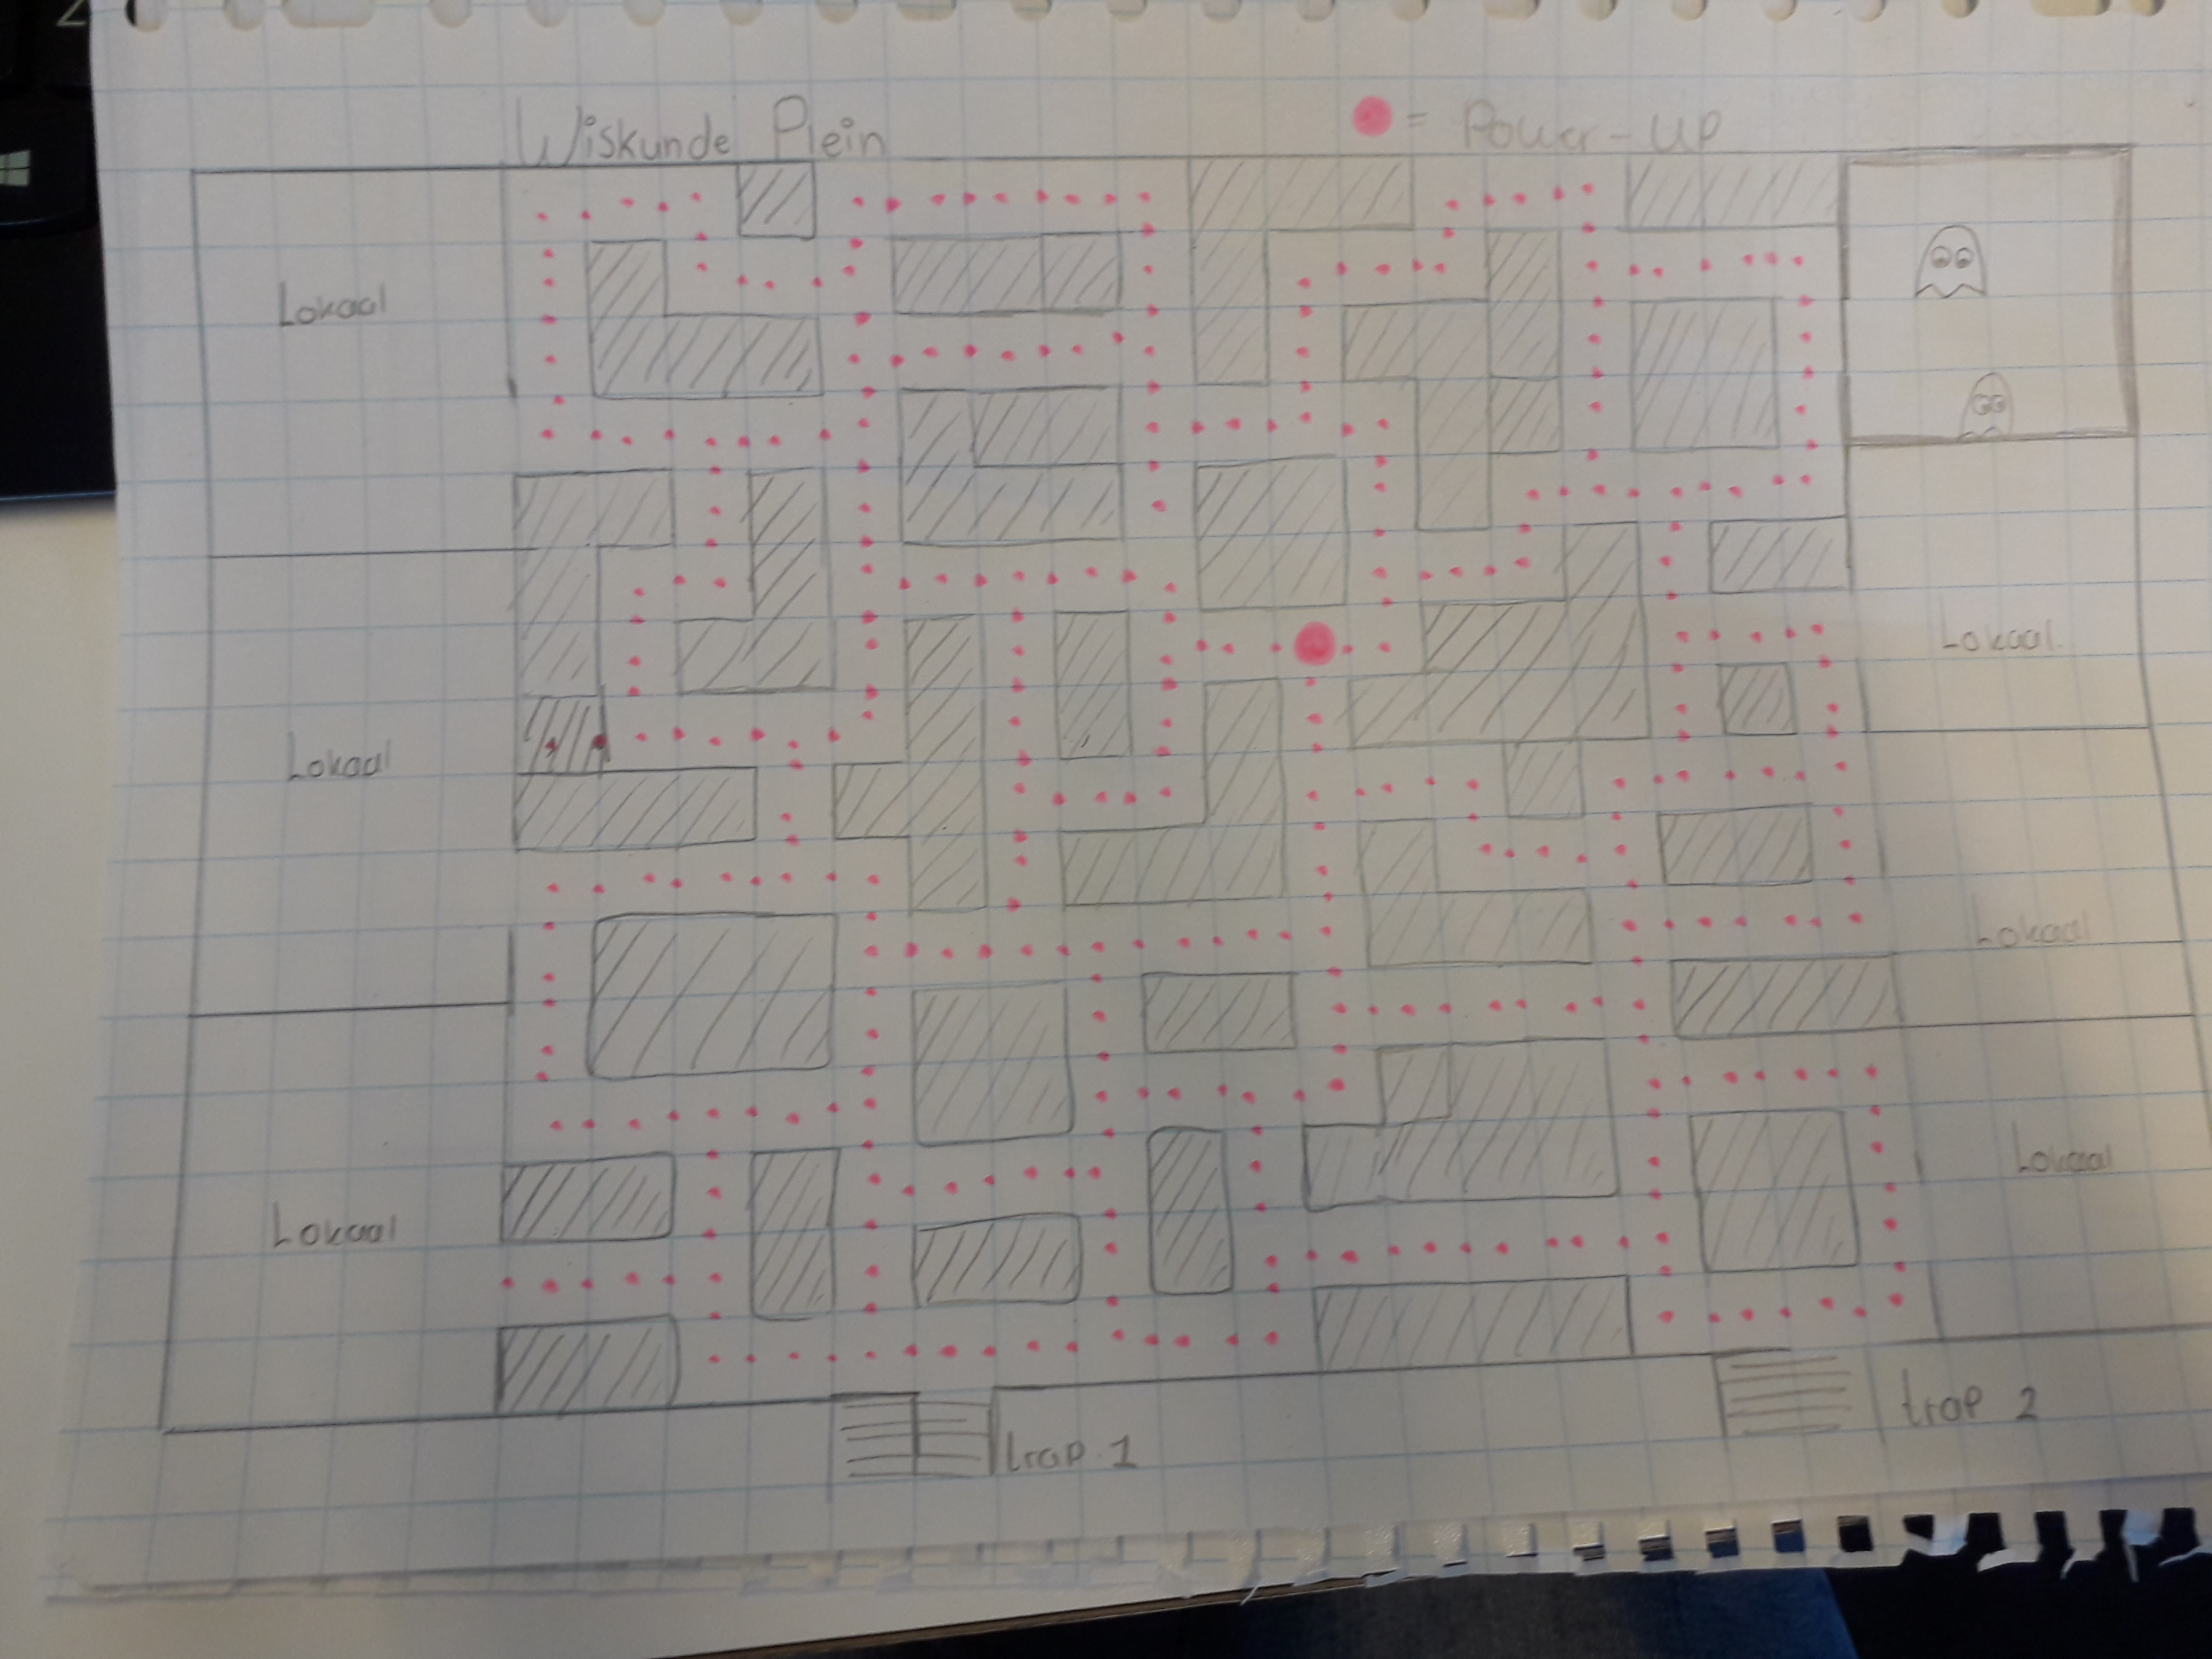 Wiskunde Plein
● = Power-up
Lokaal
Lokaal
Lokaal
Lokaal.
Lokaal
Lokaal
trap 1
trap 2
Z